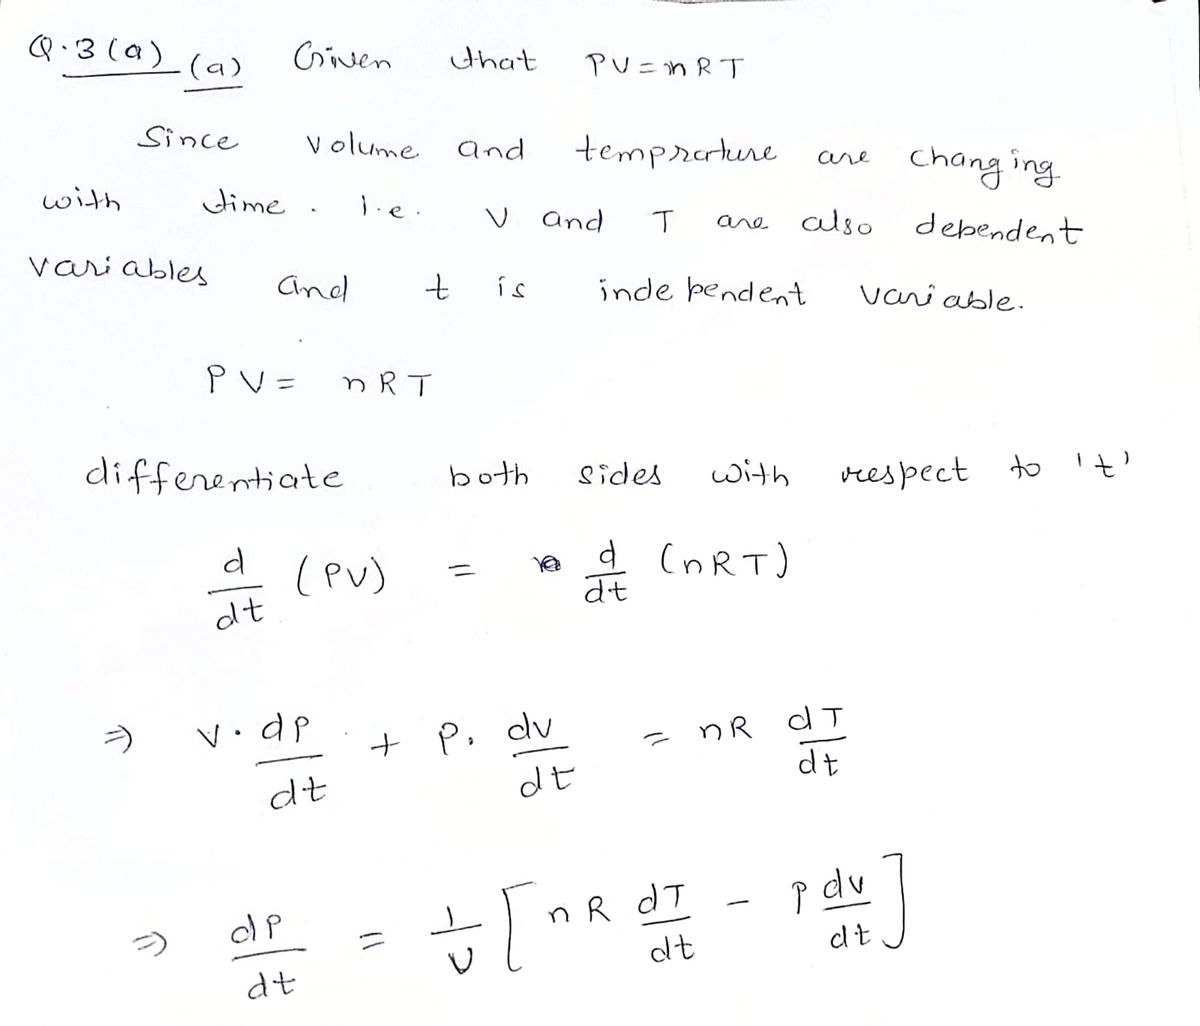 Q.3 (a) (a) Given that PV = nRT
Since volume and temprature are changing
with time. I.e. V and T are also dependent
variables and t is independent variable.
PV = nRT
differentiate both sides with respect to 't'
d/dt (PV) = d/dt (nRT)
⇒ V. dP/dt + P. dv/dt = nR dT/dt
⇒ dP/dt = 1/V [nR dT/dt - P dv/dt]